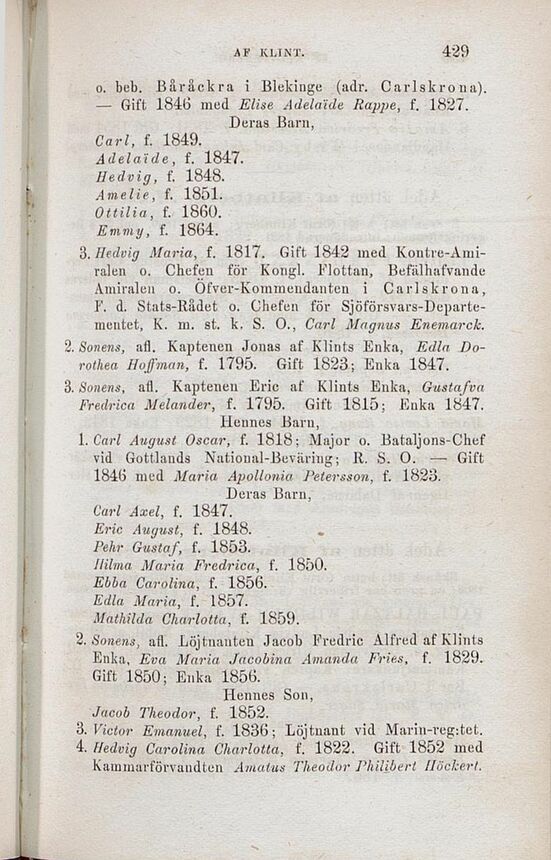 AF KLINT. 429
o. beb. Båråckra i Blekinge (adr. Carlskrona).
— Gift 1846 med Elise Adelaïde Rappe, f. 1827.
Deras Barn,
Carl, f. 1849.
Adelaïde, f. 1847.
Hedvig, f. 1848.
Amelie, f. 1851.
Ottilia, f. 1860.
Emmy, f. 1864.
3. Hedvig Maria, f. 1817. Gift 1842 med Kontre-Ami-
ralen o. Chefen för Kongl. Flottan, Befälhafvande
Amiralen o. Öfver-Kommendanten i Carlskrona,
F. d. Stats-Rådet o. Chefen för Sjöförsvars-Departe-
mentet, K. m. st. k. S. O., Carl Magnus Enemarck.
2. Sonens, afl. Kaptenen Jonas af Klints Enka, Edla Do-
rothea Hoffman, f. 1795. Gift 1823; Enka 1847.
3. Sonens, afl. Kaptenen Eric af Klints Enka, Gustafva
Fredrica Melander, f. 1795. Gift 1815; Enka 1847.
Hennes Barn,
1. Carl August Oscar, f. 1818; Major o. Bataljons-Chef
vid Gottlands National-Beväring; R. S. O. — Gift
1846 med Maria Apollonia Petersson, f. 1823.
Deras Barn,
Carl Axel, f. 1847.
Eric August, f. 1848.
Pehr Gustaf, f. 1853.
Hilma Maria Fredrica, f. 1850.
Ebba Carolina, f. 1856.
Edla Maria, f. 1857.
Mathilda Charlotta, f. 1859.
2. Sonens, afl. Löjtnanten Jacob Fredric Alfred af Klints
Enka, Eva Maria Jacobina Amanda Fries, f. 1829.
Gift 1850; Enka 1856.
Hennes Son,
Jacob Theodor, f. 1852.
3. Victor Emanuel, f. 1836; Löjtnant vid Marin-reg:tet.
4. Hedvig Carolina Charlotta, f. 1822. Gift 1852 med
Kammarförvandten Amatus Theodor Philibert Höckert.